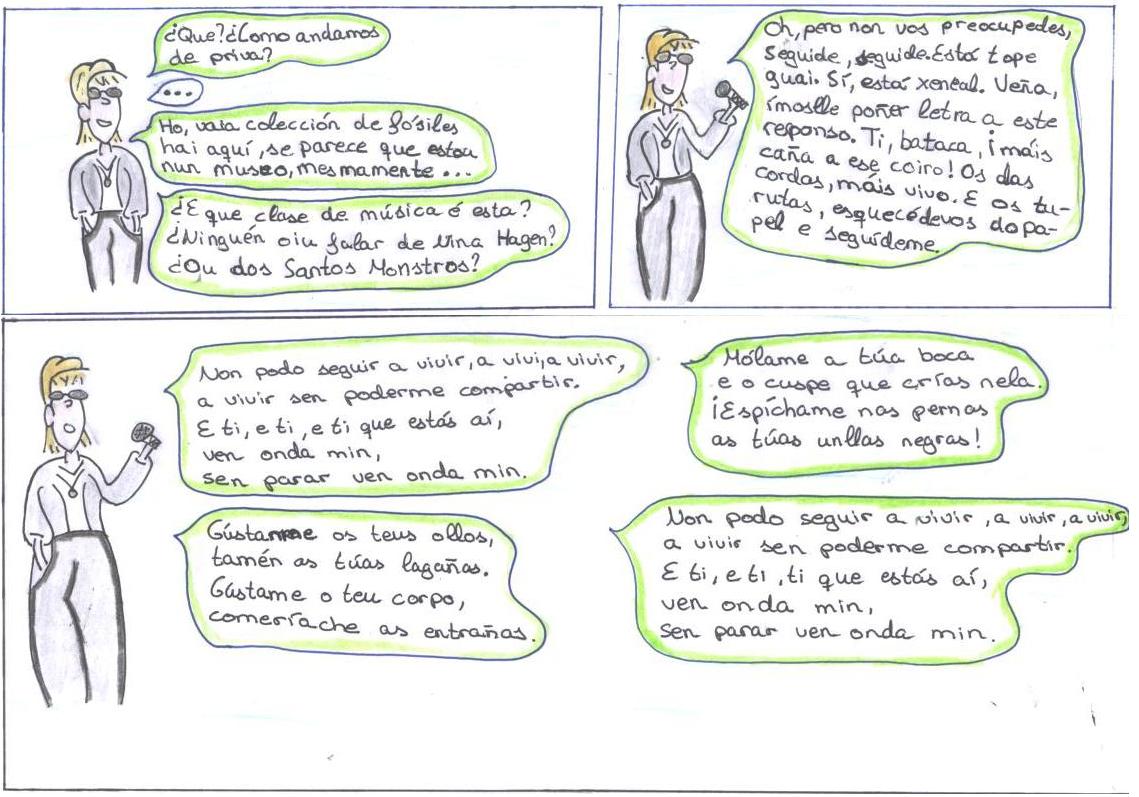 ¿Que?¿Como andamos
de priva?
...
Ho, vaia colección de fósiles
hai aquí, se parece que estou
nun museo, mesmamente...
¿E que clase de música é esta?
¿Ninguén oiu falar de Nina Hagen?
¿Ou dos Santos Monstros?
Oh, pero non vos preocupedes,
seguide, seguide. Está tope
guai. Sí, está xenial. Veña,
ímoslle poñer letra a este
responso. Ti, bataca, ¡máis
caña a ese coiro! Os das
cordas, máis vivo. E os tu-
rutas, esquecédevos do pa-
pel e seguídeme.
Non podo seguir a vivir, a vivi, a vivir,
a vivir sen poderme compartir.
E ti, e ti, e ti que estás aí,
ven onda min,
sen parar ven onda min.
Gústanme os teus ollos,
tamén as túas lagañas.
Gústame o teu corpo,
comeríache as entrañas.
Mólame a túa boca
e o cuspe que crías nela.
¡Espíchame nas pernas
as túas unllas negras!
Non podo seguir a vivir, a vivir, a vivir,
a vivir sen poderme compartir.
E ti, e ti, ti que estás aí,
ven onda min,
sen parar ven onda min.